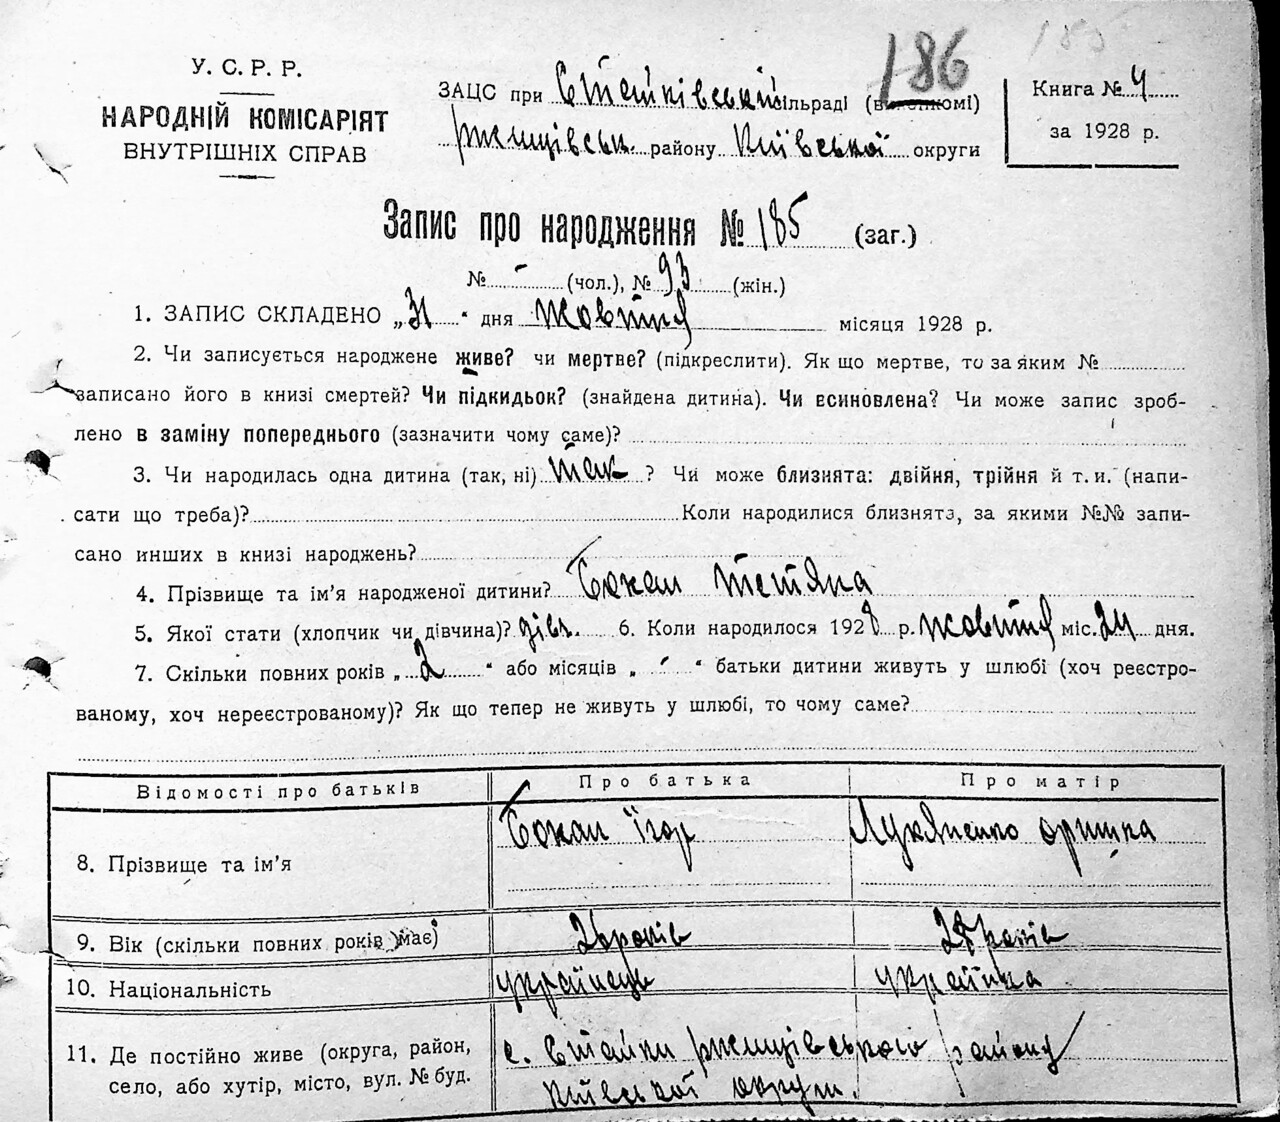 186
185
У. С. Р. Р.
НАРОДНІЙ КОМІСАРІЯТ
ВНУТРІШНІХ СПРАВ
ЗАЦС при Стайківській сільраді (виконкомі)
Ржищівськ. району Київської округи
Книга № 4
за 1928 р.
Запис про народження № 185 (заг.)
№ - (чол.), № 93 (жін.)
1. ЗАПИС СКЛАДЕНО „31“ дня жовтня місяця 1928 р.
2. Чи записується народжене живе? чи мертве? (підкреслити). Як що мертве, то за яким №
записано його в книзі смертей? Чи підкидьок? (знайдена дитина). Чи всиновлена? Чи може запис зроб-
лено в заміну попереднього (зазначити чому саме)?
3. Чи народилась одна дитина (так, ні) так ? Чи може близнята: двійня, трійня й т. и. (напи-
сати що треба)? Коли народилися близнята, за якими №№ запи-
сано инших в книзі народжень?
4. Прізвище та ім'я народженої дитини? Бокал Тетяна
5. Якої стати (хлопчик чи дівчина)? дівч. 6. Коли народилося 1928 р. жовтня міс. 24 дня.
7. Скільки повних років „2“ або місяців „-“ батьки дитини живуть у шлюбі (хоч реєстро-
ваному, хоч нереєстрованому)? Як що тепер не живуть у шлюбі, то чому саме?
Відомості про батьків Про батька Про матір
8. Прізвище та ім'я Бокал Їгор Лукяненко Оришка
9. Вік (скільки повних років має) 26 років 28 років
10. Національність українець українка
11. Де постійно живе (округа, район,
село, або хутір, місто, вул. № буд.
с. Стайки Ржищівського району
Київської округи.